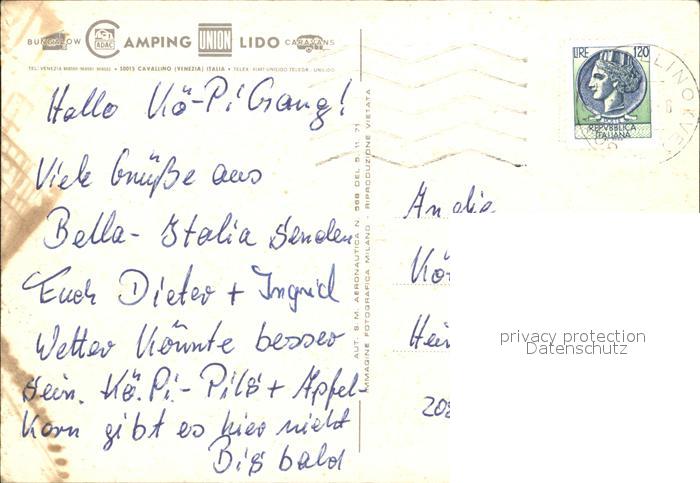 BUNGALOW ADAC CAMPING UNION LIDO CARAVANS
50013 CAVALLINO (VENEZIA) ITALIA
Hallo Kö-Pi Gang!
Viele Grüße aus
Bella-Italia senden
Euch Dieter + Ingrid
Wetter könnte besser
sein. Kö.Pi.-Pils + Apfel-
Korn gibt es hier nicht
Bis bald
AUT. S.M. AERONAUTICA N. 568 DEL 5. 11. 71
IMMAGINE FOTOGRAFICA MILANO - RIPRODUZIONE VIETATA
LIRE 120
REPVBBLICA
ITALIANA
An die
Kö
Hei
privacy protection
Datenschutz
208